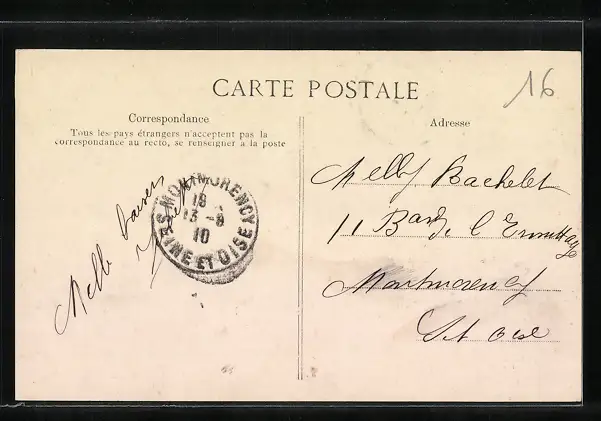 CARTE POSTALE
16
Correspondance
Tous les pays étrangers n'acceptent pas la
correspondance au recto, se renseigner a la poste
Adresse
MONTMORENCY
18
13-8
10
SEINE ET OISE
Mille baisers
Melle Bachelet
11 Bard de l'Ermitage
Montmorency
S et Oise